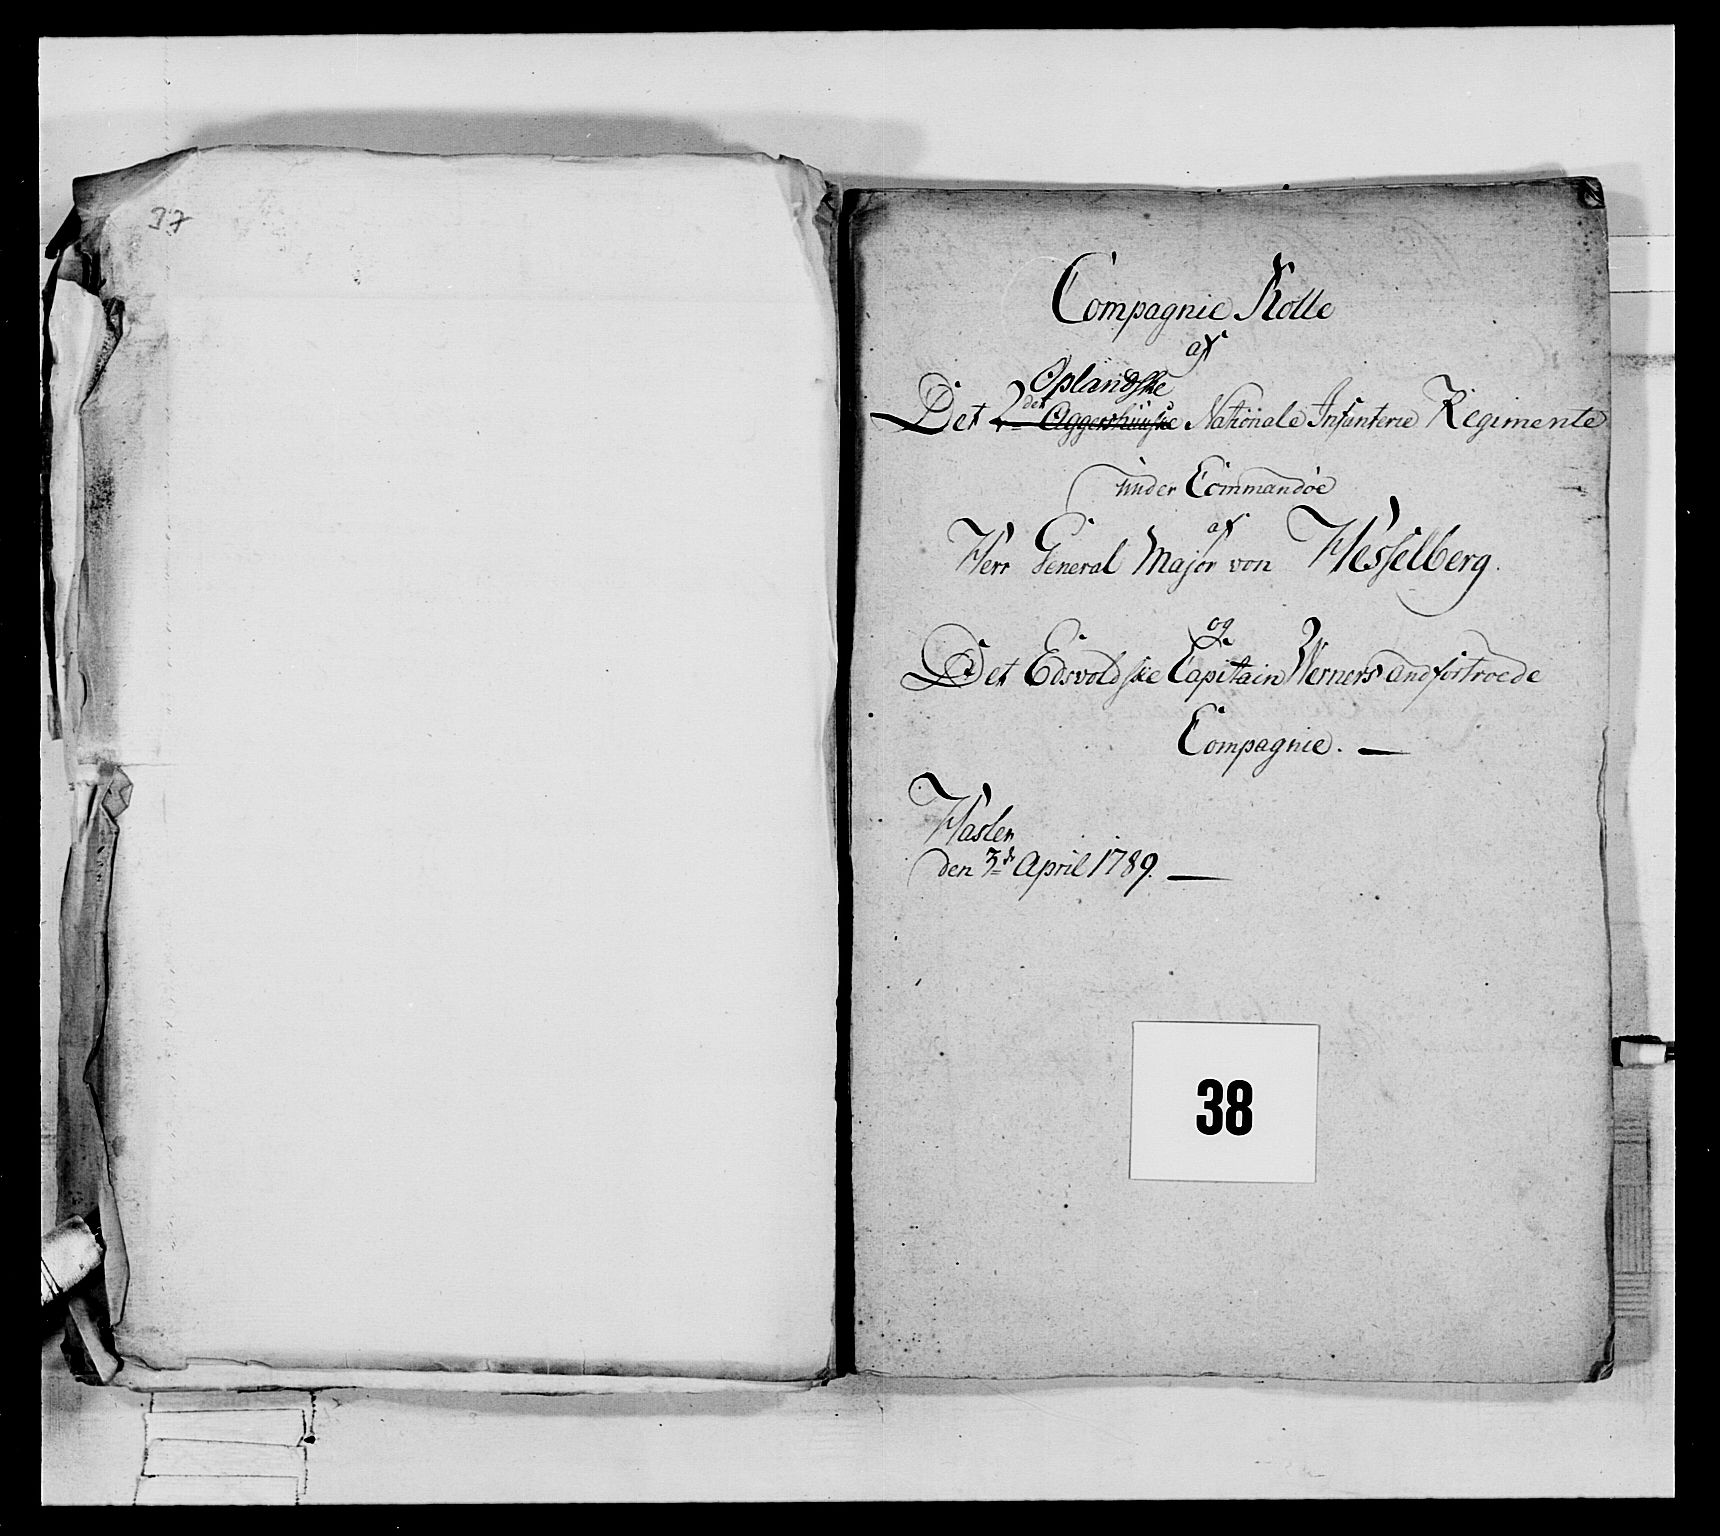 37
Compagnie Rolle
af
Oplandske
Det 2det Aggershuuske Nationale Infanterie Regimente
under Commandoe
af
Herr General Major von Hesselberg.
og
Det Edsvoldske Capitain Werners andfortroede
Compagnie. —
Haslen
den 3de April 1789. —
38